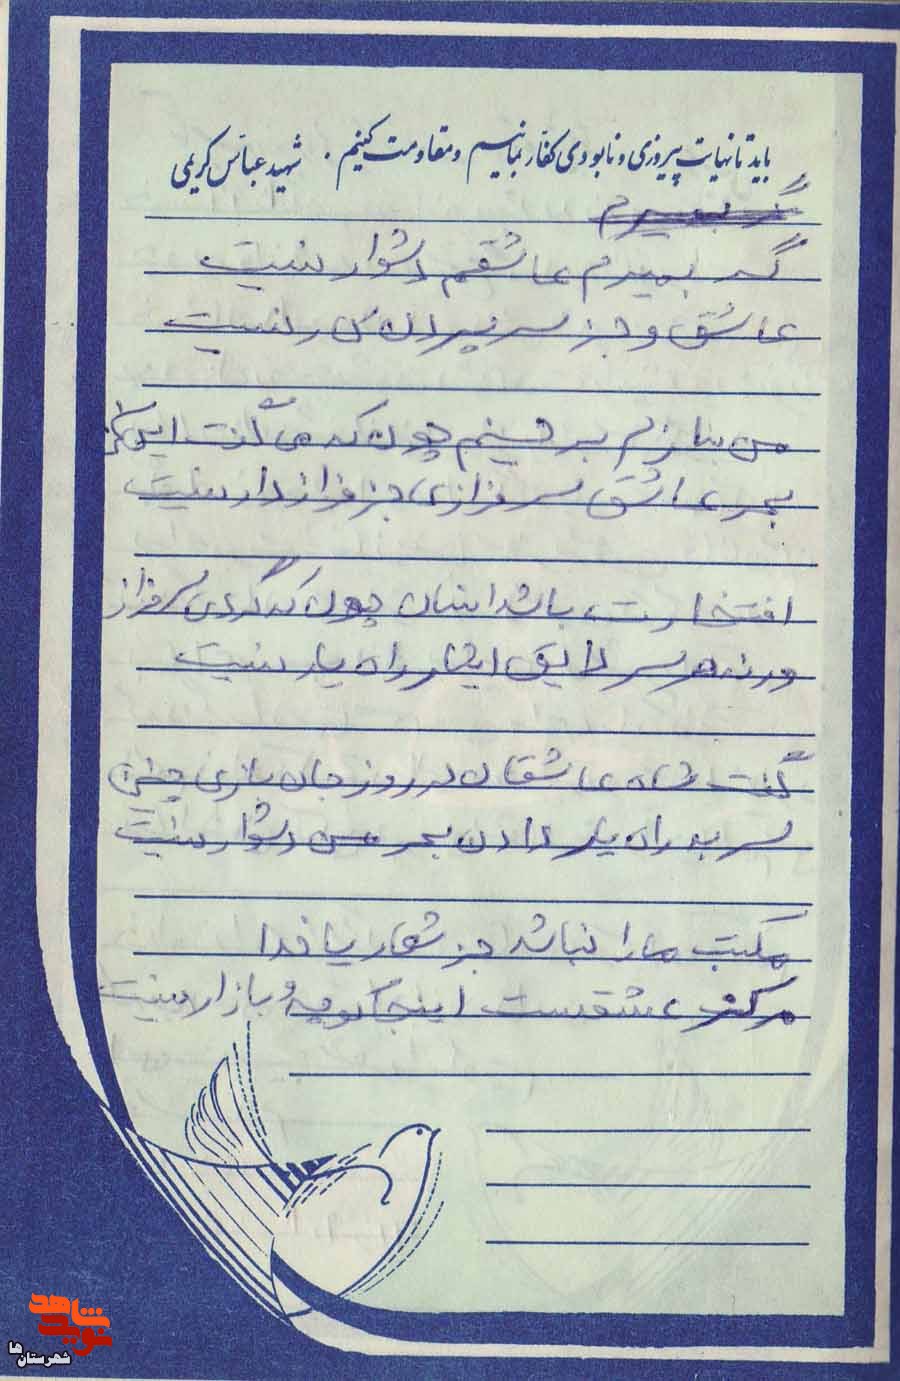 باید تا نهایت پیروزی و نابودی کفار بمانیم و مقاومت کنیم . شهید عباس کریمی
گر بمیرم
گر بمیرم عاشقم دشوار نیست
عاشق و جز سر سپردن کار نیست
من بنازم بر حسینم چون که می گفت این
بهر عاشق سرفرازی جز فراز دار نیست
افتخارت باشد اینان چون که گردی سرفراز
ورنه هر سر لایق ایثار راه یار نیست
گفت شاه عاشقان در روز جان بازی چنین
سر به راه یار دادن بهر من دشوار نیست
مکتب ما را نباشد جز شعار یا خدا
مرکز عشقست اینجا کوچه و بازار نیست
نوید شاهد
شهرستان ها